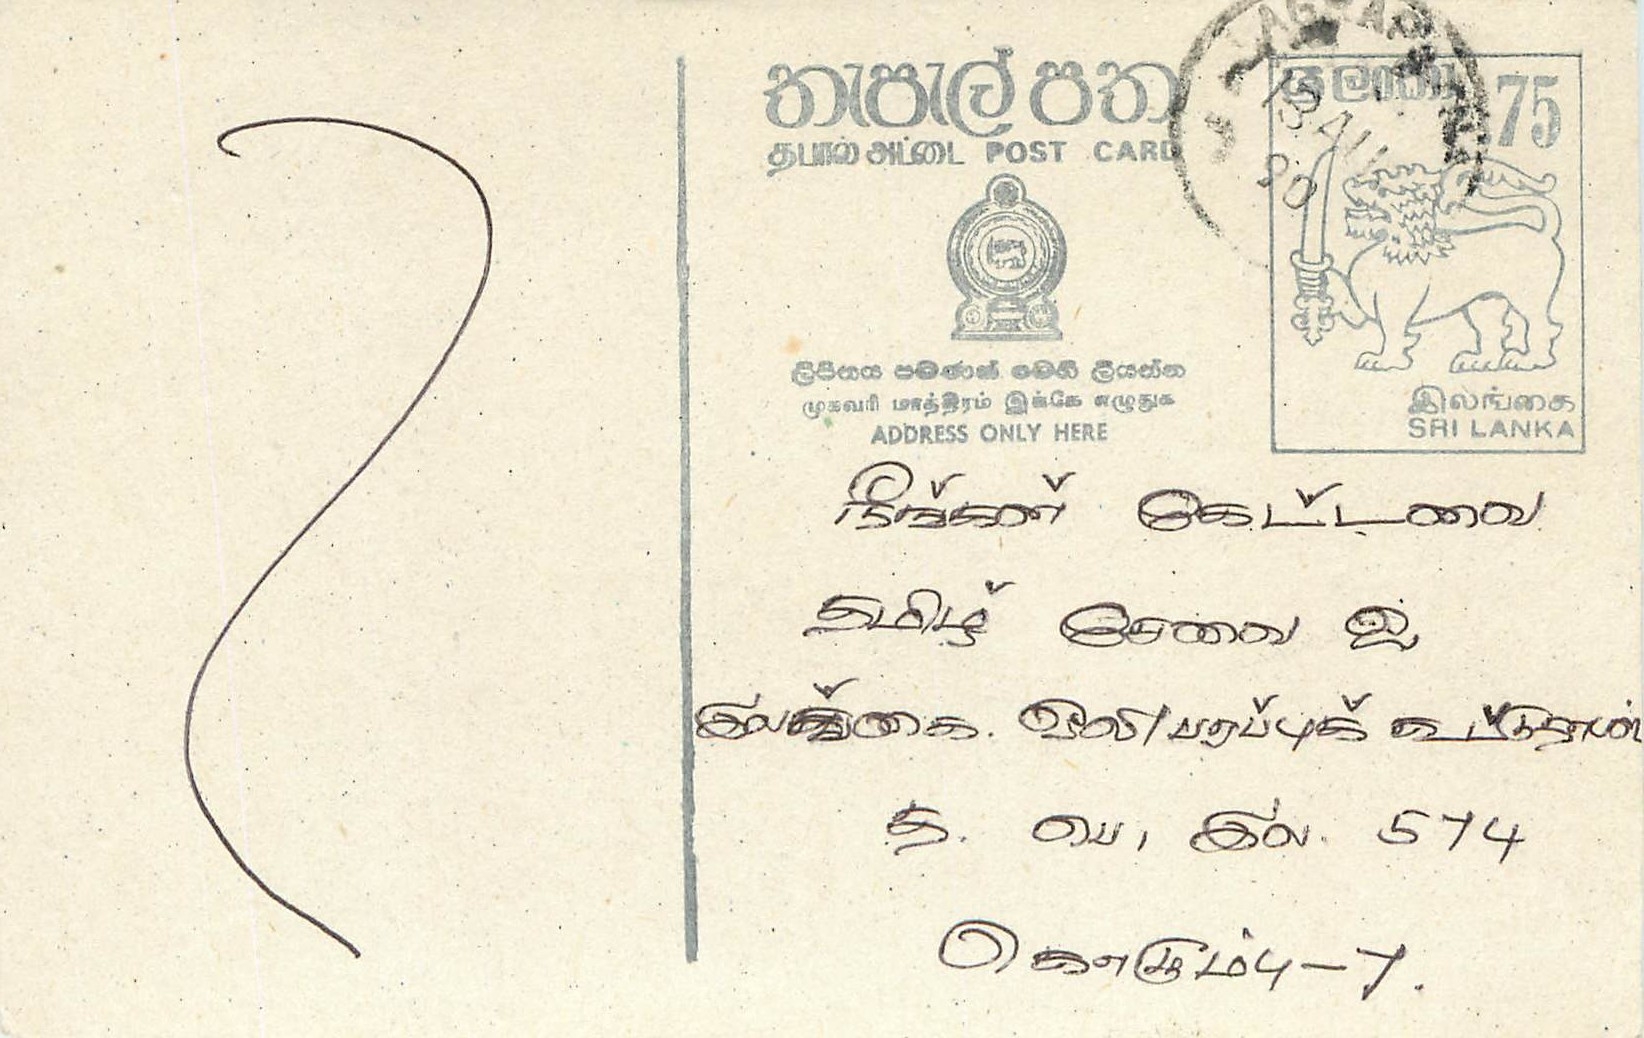 තැපැල් පත
தபால் அட்டை POST CARD
ශ්‍රී ලංකා .75
ලිපිනය පමණක් මෙහි ලියන්න
முகவரி மாத்திரம் இக்கே எழுதுக
ADDRESS ONLY HERE
இலங்கை
SRI LANKA
நீங்கள் கேட்டவை
தமிழ் சேவை இ
இலங்கை. ஒலி/பரப்புக்
த. பெ, இல. 574
கொழும்பு-7.